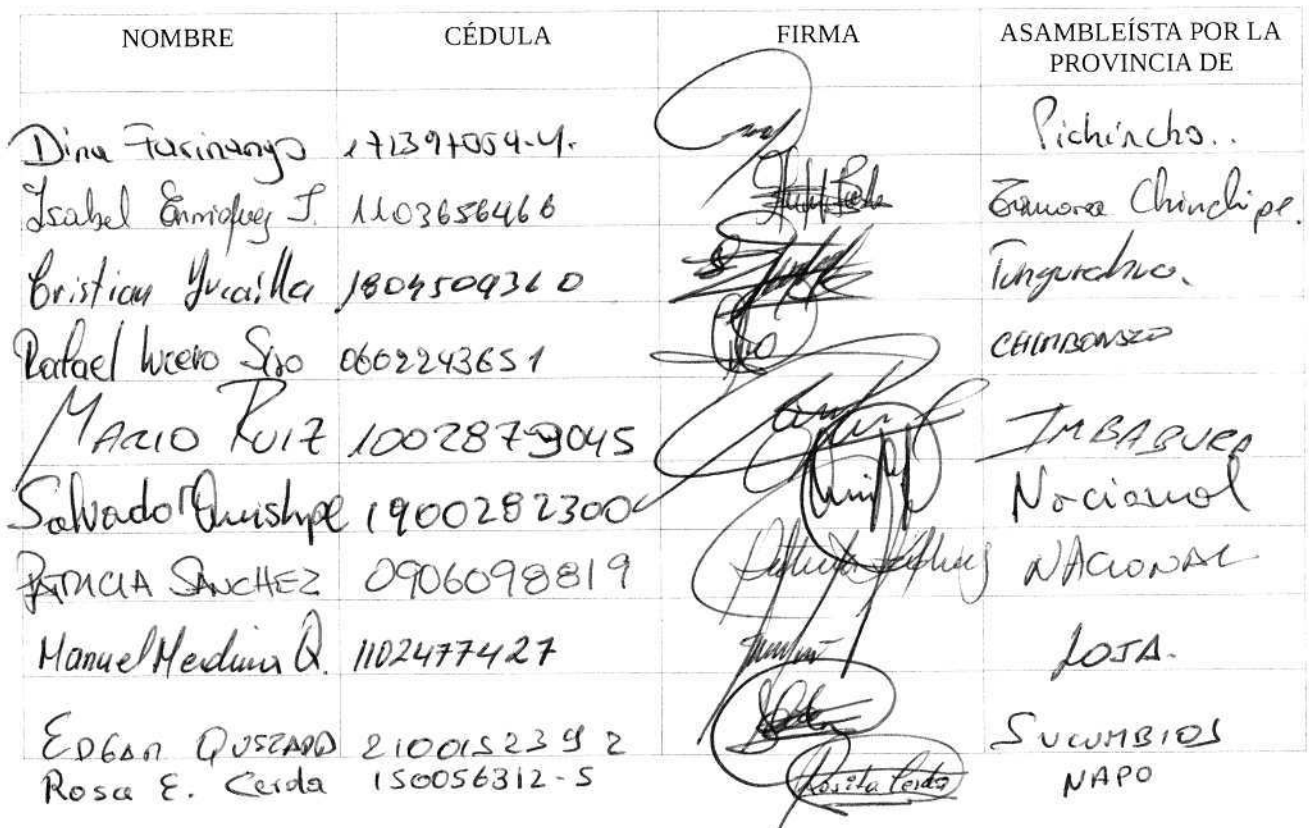 NOMBRE CÉDULA FIRMA ASAMBLEÍSTA POR LA
PROVINCIA DE
Dina Farinango 171397054-4. Pichincha..
Isabel Enriquez J. 1103656466 Zamora Chinchipe.
Cristian Yucailla 1804509310 Tungurahua.
Rafael Lucero Siso 0602243651 CHIMBORAZO
MARIO RUIZ 1002879045 IMBABURA
Salvador Quishpe 1900282300 Nacional
PATRICIA SÁNCHEZ 0906098819 NACIONAL
Manuel Medina Q. 1102477427 LOJA.
EDGAR QUEZADA 2100152392 SUCUMBIOS
Rosa E. Cerda 150056312-5 Rosita Cerda NAPO